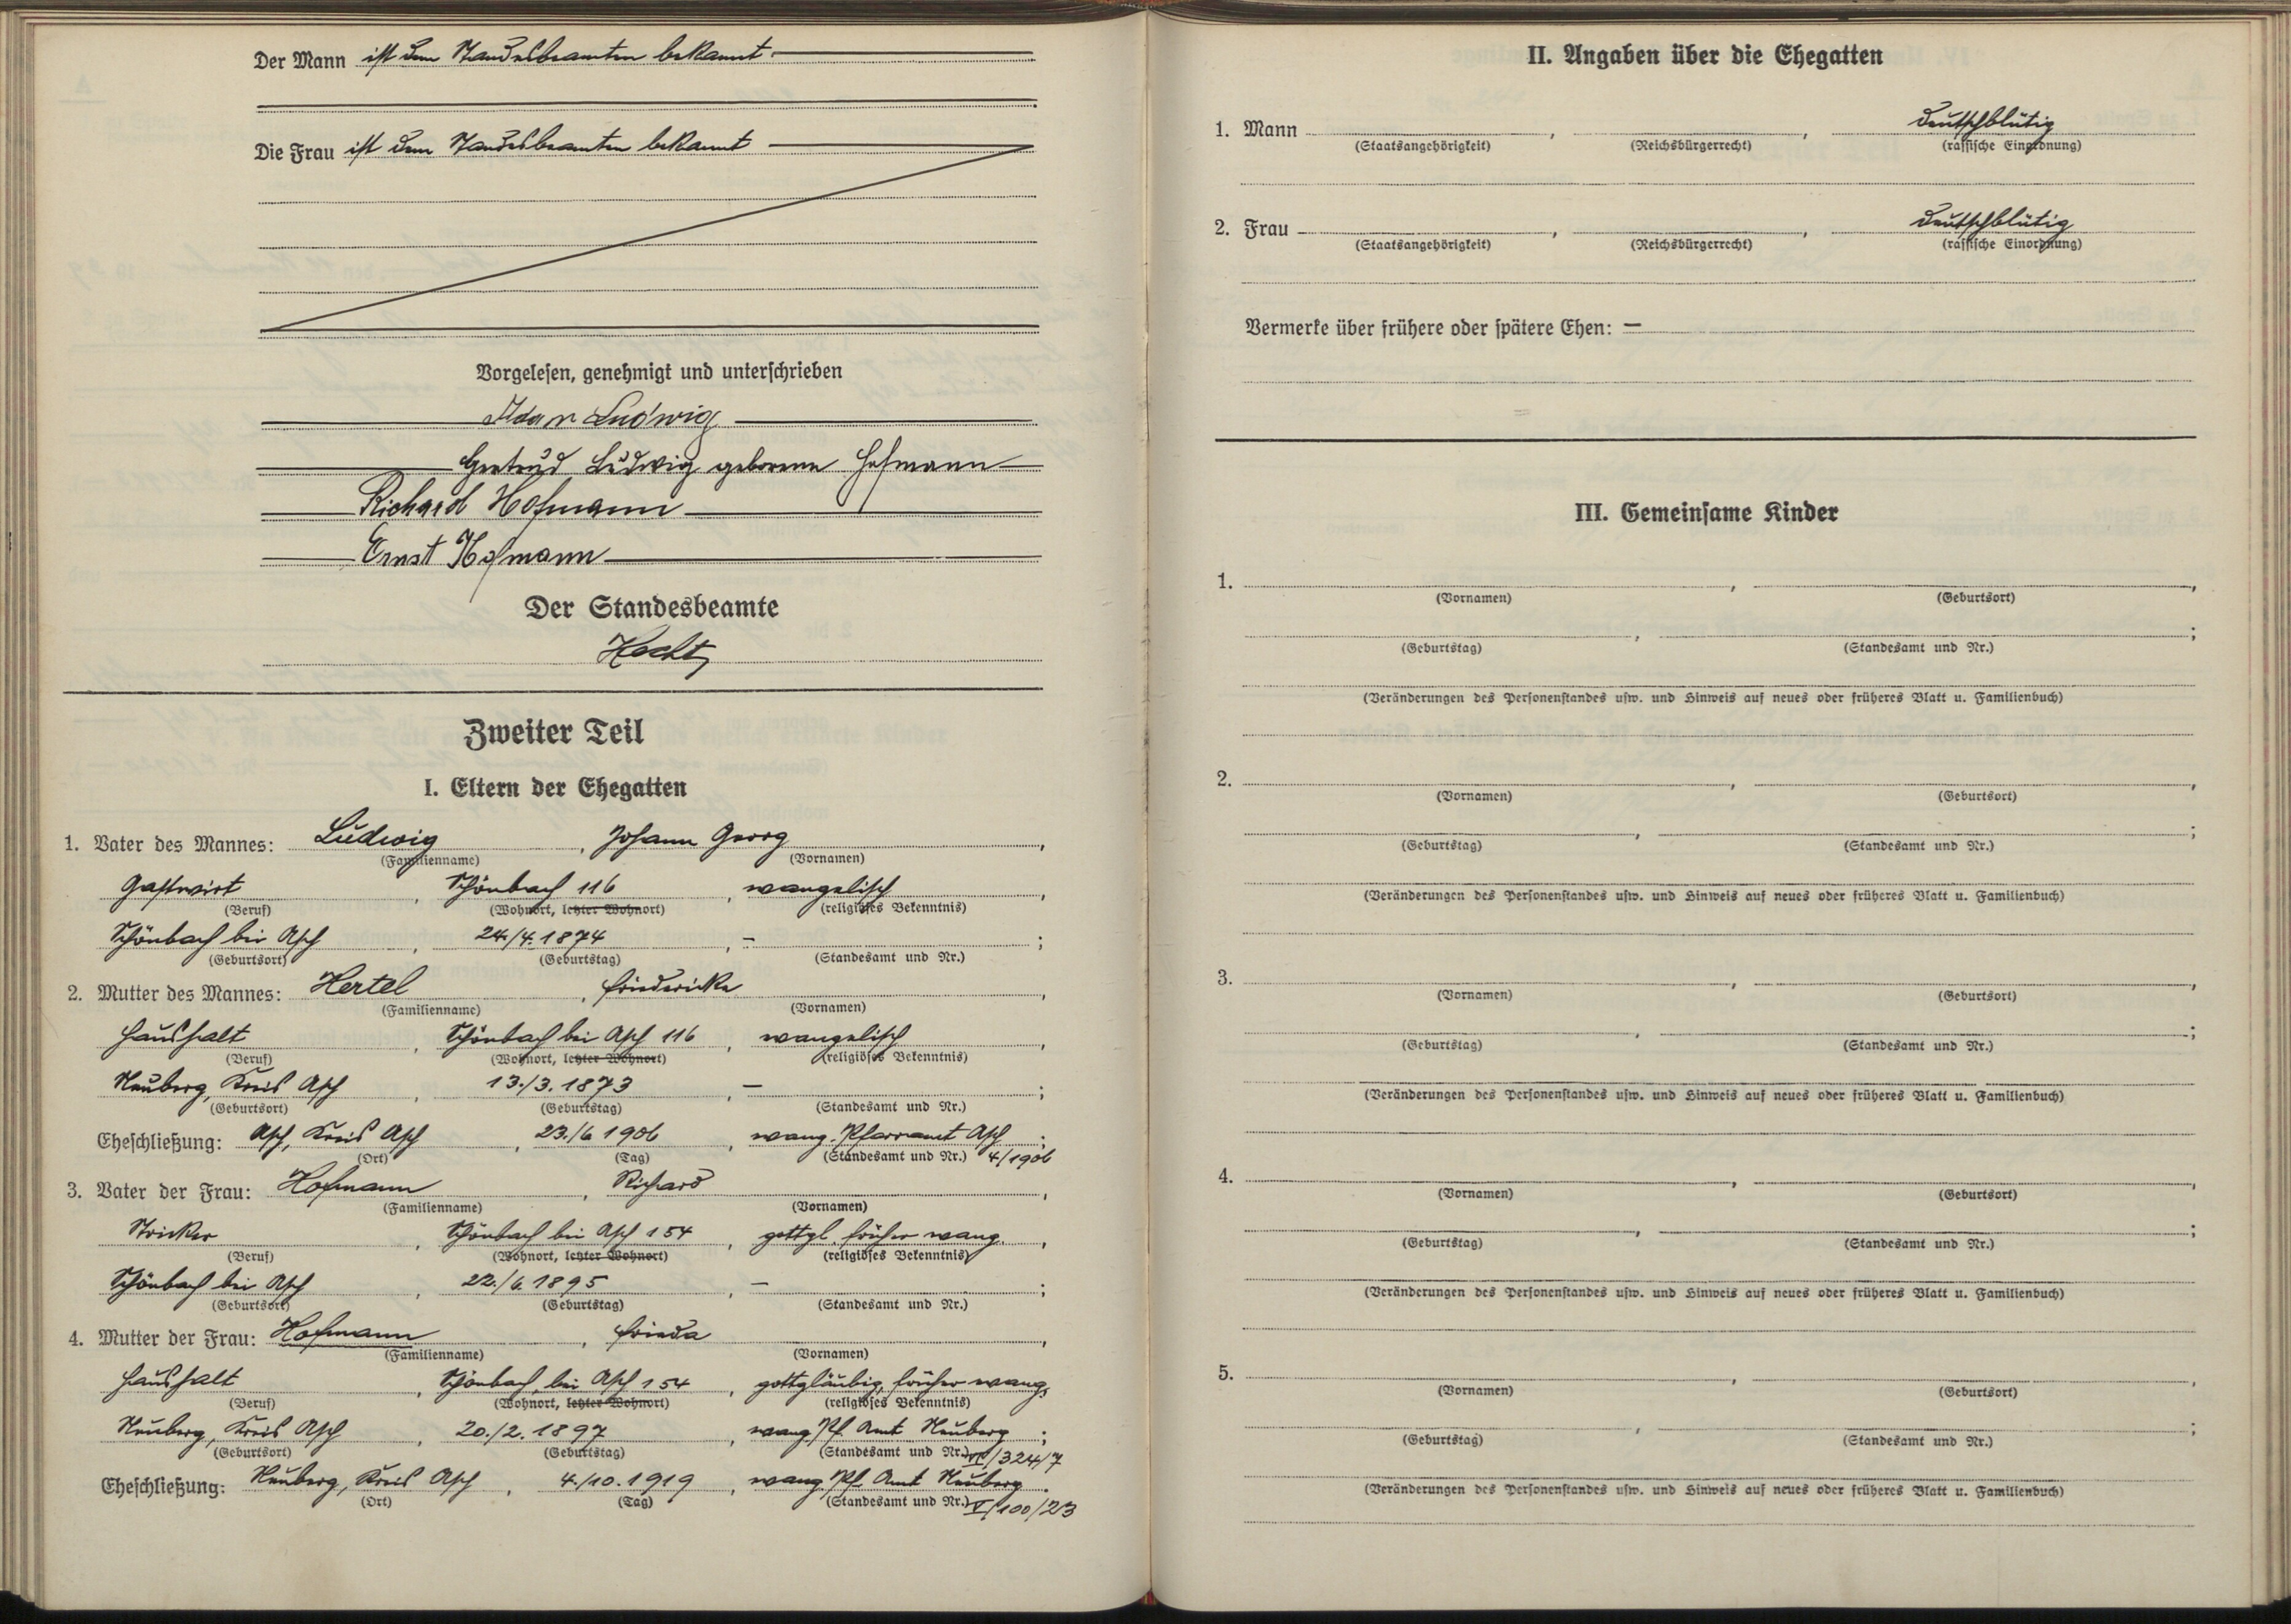 Der Mann ist dem Standesbeamten bekannt
Die Frau ist dem Standesbeamten bekannt
Vorgelesen, genehmigt und unterschrieben
Adam Ludwig
Gertrud Ludwig geborene Hofmann
Richard Hofmann
Ernst Hofmann
Der Standesbeamte
Zweiter Teil
I. Eltern der Ehegatten
1. Vater des Mannes: Ludwig, Johann Georg,
(Familienname) (Vornamen)
Gastwirt, Schönbach 116, evangelisch,
(Beruf) (Wohnort, letzter Wohnort) (religiöses Bekenntnis)
Schönbach bei Asch, 24./4. 1874, –;
(Geburtsort) (Geburtstag) (Standesamt und Nr.)
2. Mutter des Mannes: Hertel, Friedericke,
(Familienname) (Vornamen)
Haushalt, Schönbach bei Asch 116, evangelisch,
(Beruf) (Wohnort, letzter Wohnort) (religiöses Bekenntnis)
Neuberg, Kreis Asch, 13./3. 1873, –;
(Geburtsort) (Geburtstag) (Standesamt und Nr.)
Eheschließung: Asch, Kreis Asch, 23./6 1906, evang. Pfarramt Asch;
(Ort) (Tag) (Standesamt und Nr.) 4/1906
3. Vater der Frau: Hofmann, Richard,
(Familienname) (Vornamen)
Stricker, Schönbach bei Asch 154, gottgl. früher evang.,
(Beruf) (Wohnort, letzter Wohnort) (religiöses Bekenntnis)
Schönbach bei Asch, 22./6. 1895, –;
(Geburtsort) (Geburtstag) (Standesamt und Nr.)
4. Mutter der Frau: Hofmann, Frieda,
(Familienname) (Vornamen)
Haushalt, Schönbach bei Asch 154, gottgläubig, früher evang.
(Beruf) (Wohnort, letzter Wohnort) (religiöses Bekenntnis)
Neuberg, Kreis Asch, 20./2. 1897, evang. Pf. Amt Neuberg;
(Geburtsort) (Geburtstag) (Standesamt und Nr.) /324/7
Eheschließung: Neuberg, Kreis Asch, 4./10. 1919, evang. Pf. Amt Neuberg.
(Ort) (Tag) (Standesamt und Nr.) V/100/23
II. Angaben über die Ehegatten
1. Mann , , deutschblütig
(Staatsangehörigkeit) (Reichsbürgerrecht) (rassische Einordnung)
2. Frau , , deutschblütig
(Staatsangehörigkeit) (Reichsbürgerrecht) (rassische Einordnung)
Vermerke über frühere oder spätere Ehen: –
III. Gemeinsame Kinder
1. , ,
(Vornamen) (Geburtsort)
, ;
(Geburtstag) (Standesamt und Nr.)
(Veränderungen des Personenstandes usw. und Hinweis auf neues oder früheres Blatt u. Familienbuch)
2. , ,
(Vornamen) (Geburtsort)
, ;
(Geburtstag) (Standesamt und Nr.)
(Veränderungen des Personenstandes usw. und Hinweis auf neues oder früheres Blatt u. Familienbuch)
3. , ,
(Vornamen) (Geburtsort)
, ;
(Geburtstag) (Standesamt und Nr.)
(Veränderungen des Personenstandes usw. und Hinweis auf neues oder früheres Blatt u. Familienbuch)
4. , ,
(Vornamen) (Geburtsort)
, ;
(Geburtstag) (Standesamt und Nr.)
(Veränderungen des Personenstandes usw. und Hinweis auf neues oder früheres Blatt u. Familienbuch)
5. , ,
(Vornamen) (Geburtsort)
, ;
(Geburtstag) (Standesamt und Nr.)
(Veränderungen des Personenstandes usw. und Hinweis auf neues oder früheres Blatt u. Familienbuch)